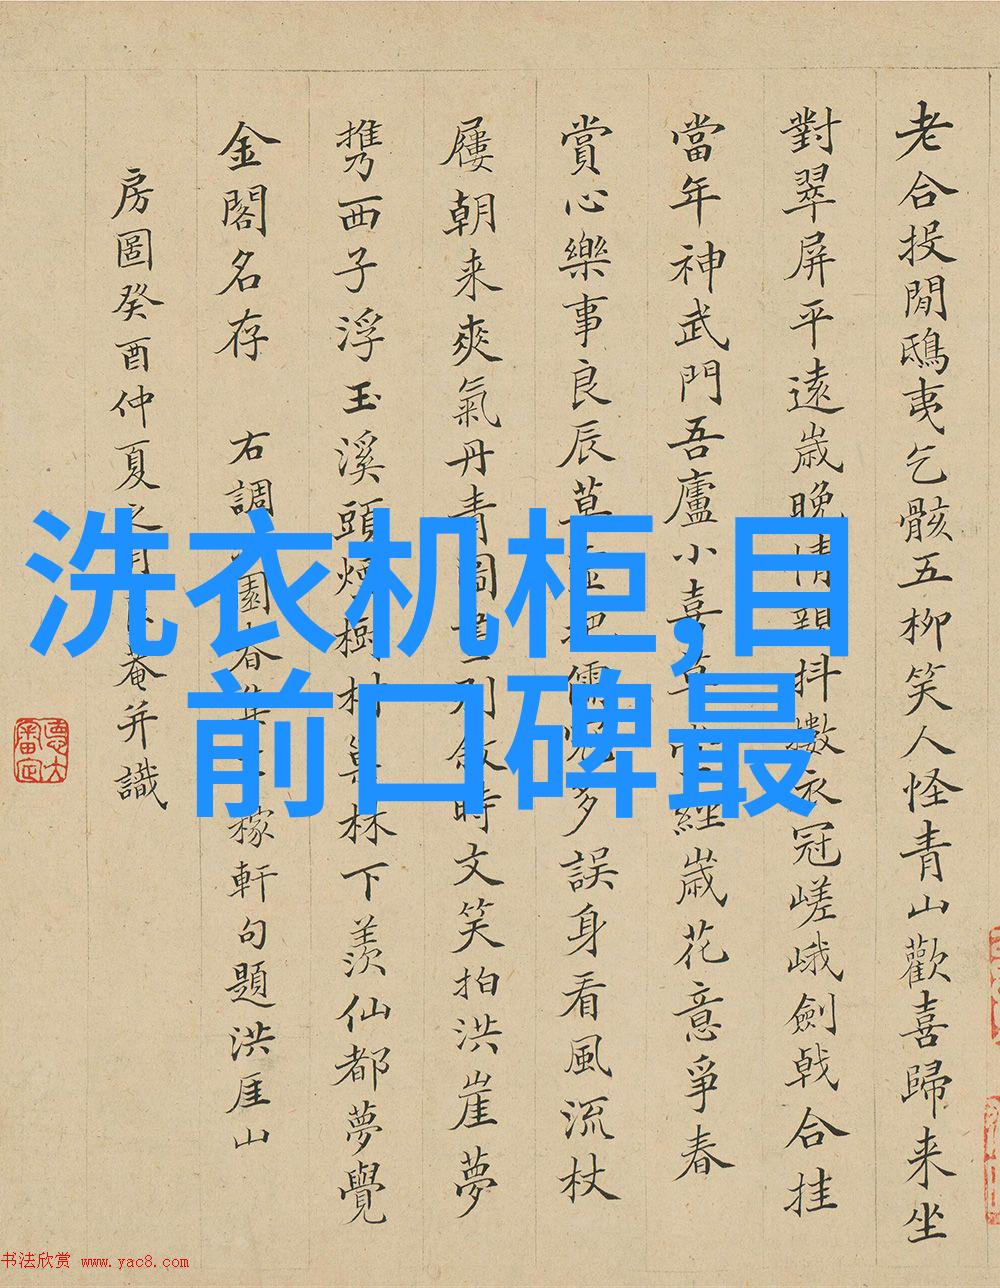 老合投閒鴟夷乞骸五柳笑人怪青山歡喜歸来坐
對翠屏平遠歲晚情親抖擻衣冠嵯峨劍戟合挂
當年神武門吾廬小喜草堂經歲花意爭春
賞心樂事良辰莫把儒冠多誤身看風流杖
屨朝来爽氣丹青圖畫一別時文笑拍洪崖夢
携西子浮玉溪頭煙樹村林下羨仙都夢覺
金閣名存 右調園春集稼軒句題洪厓山
房圖癸酉仲夏之月菴并識
洗衣机柜,目
前口碑最
书法欣赏 www.yac8.com